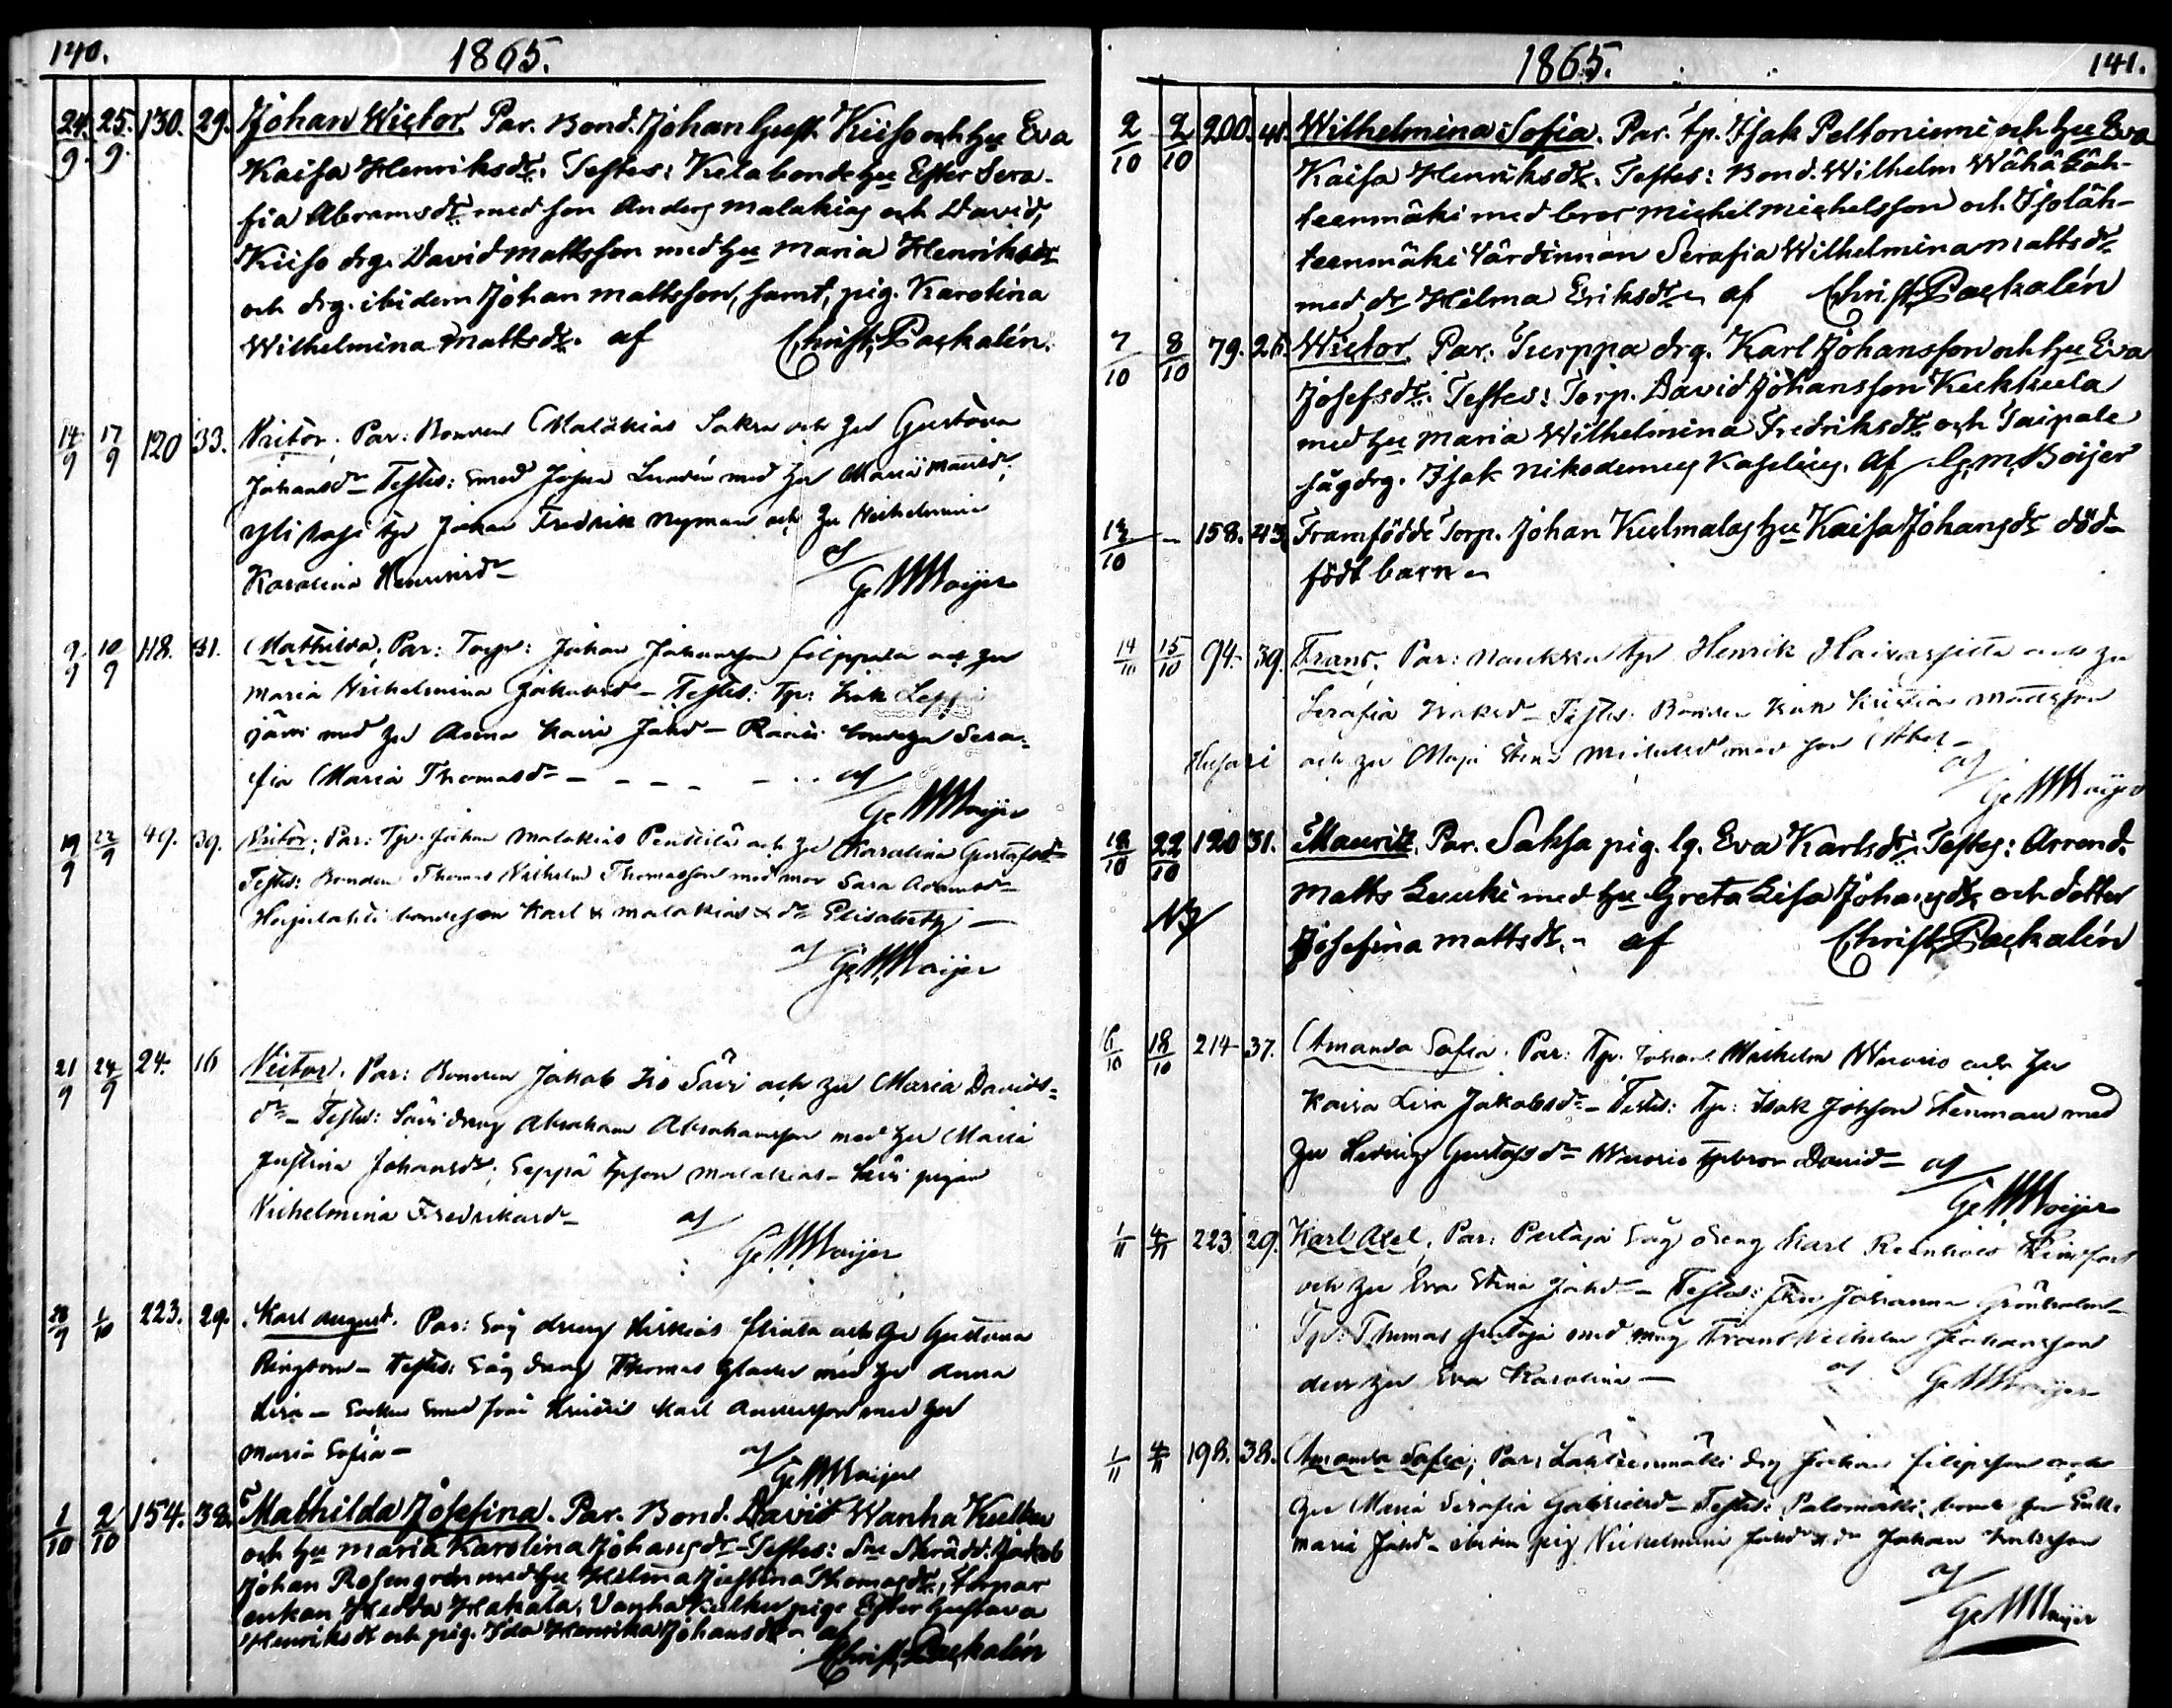 140.
1865.
24/9. 25/9. 130. 29. Johan Wictor. Par. Bond. Johan Gust. Kiiso och Hu Eva
Kaisa Henriksdr. Testes: Kelabonde hu Ester Sera-
fia Abramsdr med son Anders Malakias och David,
Kiiso drg. David Mattsson med hu Maria Henriksdr
och drg. ibidem Johan Mattsson, samt, pig. Karolina
Wilhelmina Mattsdr. af Christ. Paskalén.
14/9 17/9 120 33. Victor. Par: Bonden Malakias Saksa och hu Gustava
Johansdr Testes: Smed Josua Lundén med hu Maria
tp Johan Fredrik Nyman och hu Wilhelmina
Karolina Henriksdr af
G. M. Boijer
9/9 10/9 118. 31. Mathilda, Par: Torp: Johan Johansson Filppula och hu
Maria Wilhelmina Jakobsd – Testes: Tp: Isak Leppi
järvi med hu Anna Kaisa Johd – bondehu Sera-
fia Maria Thomasdr – – – – – af
G. M. Boijer
19/9 22/9 49. 39. Victor; Par: Tp. Johan Malakias Penttilä och hu Karolina Gustafsd
Testes: Bonden Thomas Wilhelm Thomasson med mor Sara Adamsdr
bondeson Karl & Malakias & dr Elisabeth –
af G. M. Boijer
21/9 24/9 24. 16 Victor. Par: Bonden Jakob Iso Savi och hu Maria Davids-
dr – Testes: Savi dräng Abraham Abrahamsson med hu Maria
Justina Johansdr; Seppä tpson Malakias – Savi pigan
Wilhelmina Fredriksd – af
G. M. Boijer
28/9 1/10 223. 29. Karl August. Par: Såg dräng och hu Gustava
Ringbom – Testes: Såg dräng Thomas med hu Anna
Lisa – Smed från Karl Andersson med hu
Maria Sofia – af
G. M. Boijer
1/10 2/10 154. 38. Mathilda Josefina. Par. Bond. David Wanha Kulku
och hu Maria Karolina Johansdr – Testes: Skrädd. Jakob
Johan Rosengrén med hu Helma Justina Thomasdr, torpar
enkan Hedda Hakala, Vanha Kulku piga Ester Gustava
Henriksdr och pig. Ida Henrika Johansdr – af
Christ. Paskalén
1865.
141.
2/10 2/10 200. 41. Wilhelmina Sofia. Par. tp. Isak Peltoniemi och hu Eva
Kaisa Henriksdr. Testes: Bond. Wilhelm Wähä Läh-
teenmäki med bror Michel Michelsson och Isoläh-
teenmäki värdinnan Serafia Wilhelmina Mattsdr
med dr Hilma Eriksdr – af Christ. Paskalén
7/10 8/10 79. 26. Wictor. Par. Turppa drg. Karl Johansson och hu Eva
Josefsdr. Testes: Torp. David Johansson Kukkula
med hu Maria Wilhelmina Fredriksdr och Taipale
sågdrg. Isak Nikodemus Kaselius. af G. M. Boijer
12/10 – 158. 43. Framfödde Torp. Johan Kulmalas hu Kaisa Johansdr död-
födt barn –
14/10 15/10 94. 39. Frans. Par: Naukka tp Henrik Haivasjitta och hu
Serafia Isaksd – Testes: Bonden Isak Kristian Mattsson
Husari och hu Maja Stina Michelsd med son Abel –
af
G. M. Boijer
18/10 22/10 120 31. Maurits. Par. Saksa pig. lg. Eva Karlsdr. Testes: Arrend.
NB Matts Luuki med hu Greta Lisa Johansdr och dotter
Josefina Mattsdr. – af Christ. Paskalén
6/10 18/10 214 37. Amanda Sofia. Par: Tp. Johan Wilhelm Wuorio och hu
Kaisa Lisa Jakobsdr – Testes: Tp: Isak Johsson Stenman med
hu Hedvig Gustafsdr Wuorio tpbror David – af
G. M. Boijer
1/11 4/11 223 29. Karl Axel. Par: Såg dräng Karl Reinhold
och hu Eva Stina Johdr – Testes: Johanna Grönholm –
Tp: Thomas med måg Frans Wilhelm Johansson
dess hu Eva Karolina – af G. M. Boijer
1/11 4/11 198. 38. Amanda Sofia; Par: Lähteenmäki drg Johan Filipsson och
hu Maria Serafia Gabrielsd – Testes: Palomäki bonde
Maria Johd – ibidem pig Wilhelmina Johdr & dr Johan
af
G. M. Boijer